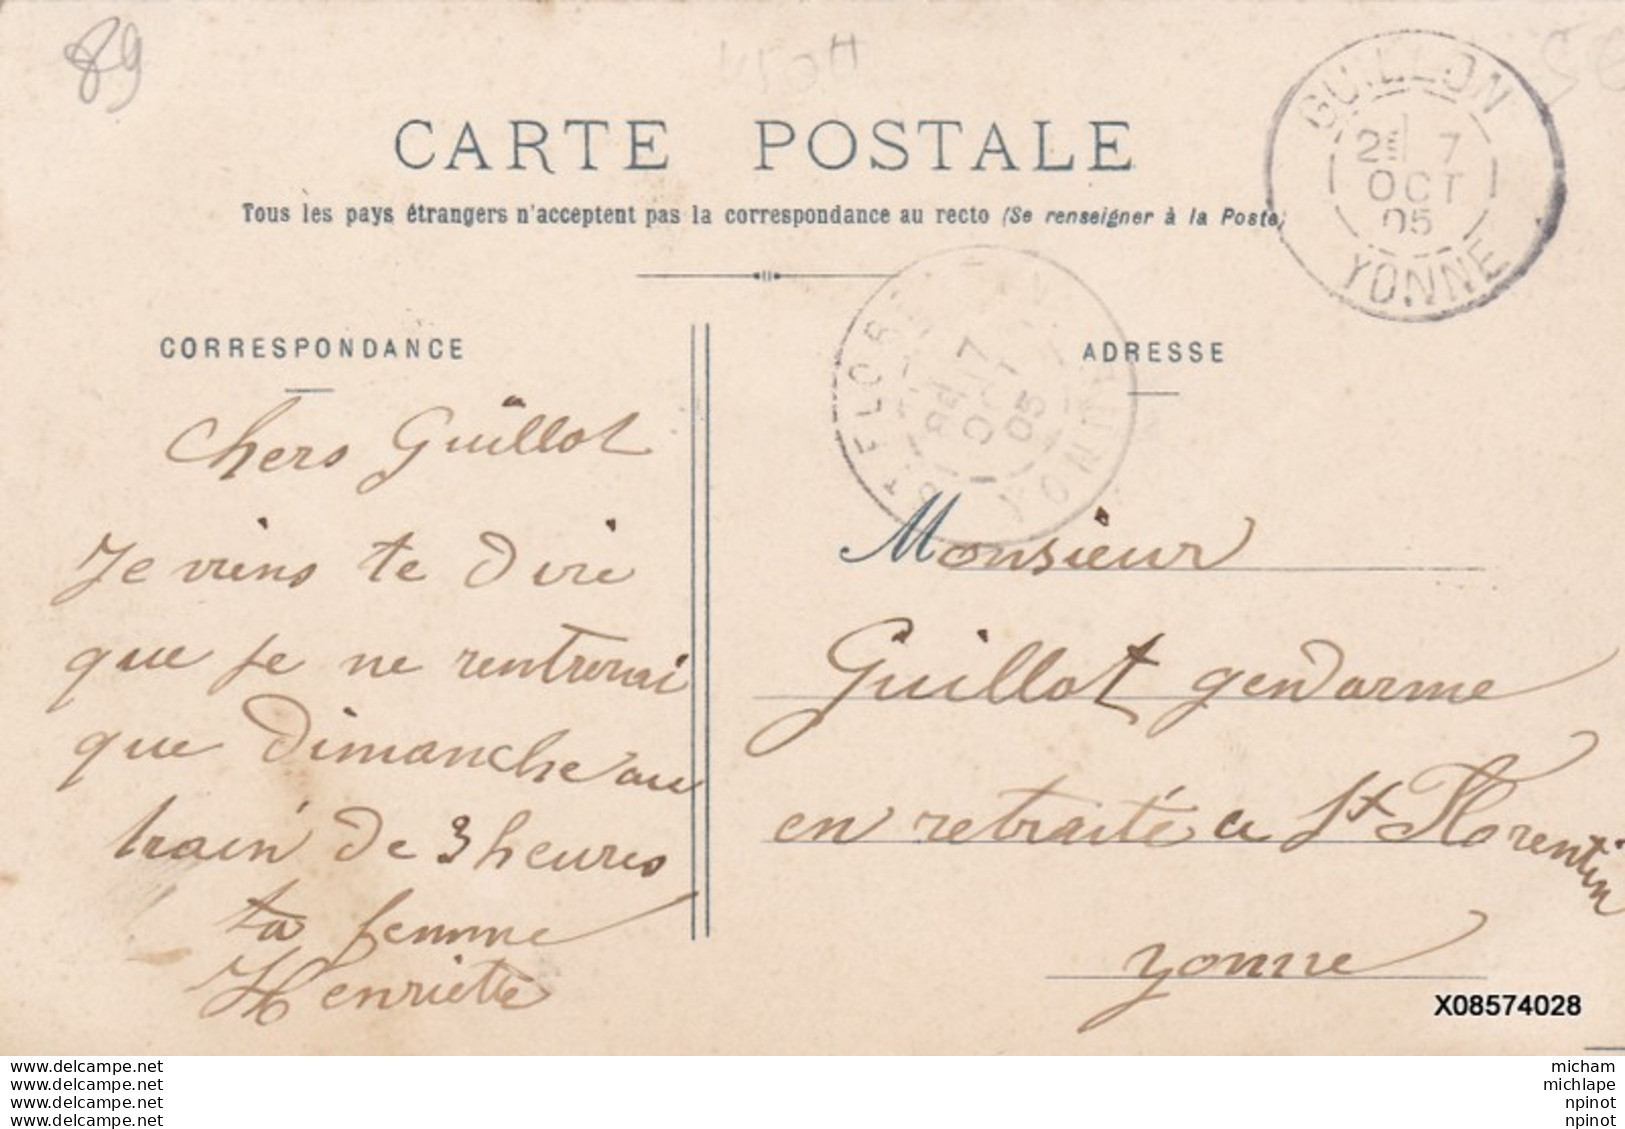 89
CARTE POSTALE
Tous les pays étrangers n'acceptent pas la correspondance au recto (Se renseigner à la Poste)
GUILLON
2E 7
OCT
05
YONNE
ST FLOR
7
05
YONNE
CORRESPONDANCE
chers Guillot
Je viens te dire
que je ne rentrerai
que dimanche au
train de 3 heures
ta femme
Henriette
ADRESSE
Monsieur
Guillot gendarme
en retraité a St Florentin
yonne
X08574028
delcampe.net
delcampe.net
delcampe.net
delcampe.net
micham
michlape
npinot
npinot